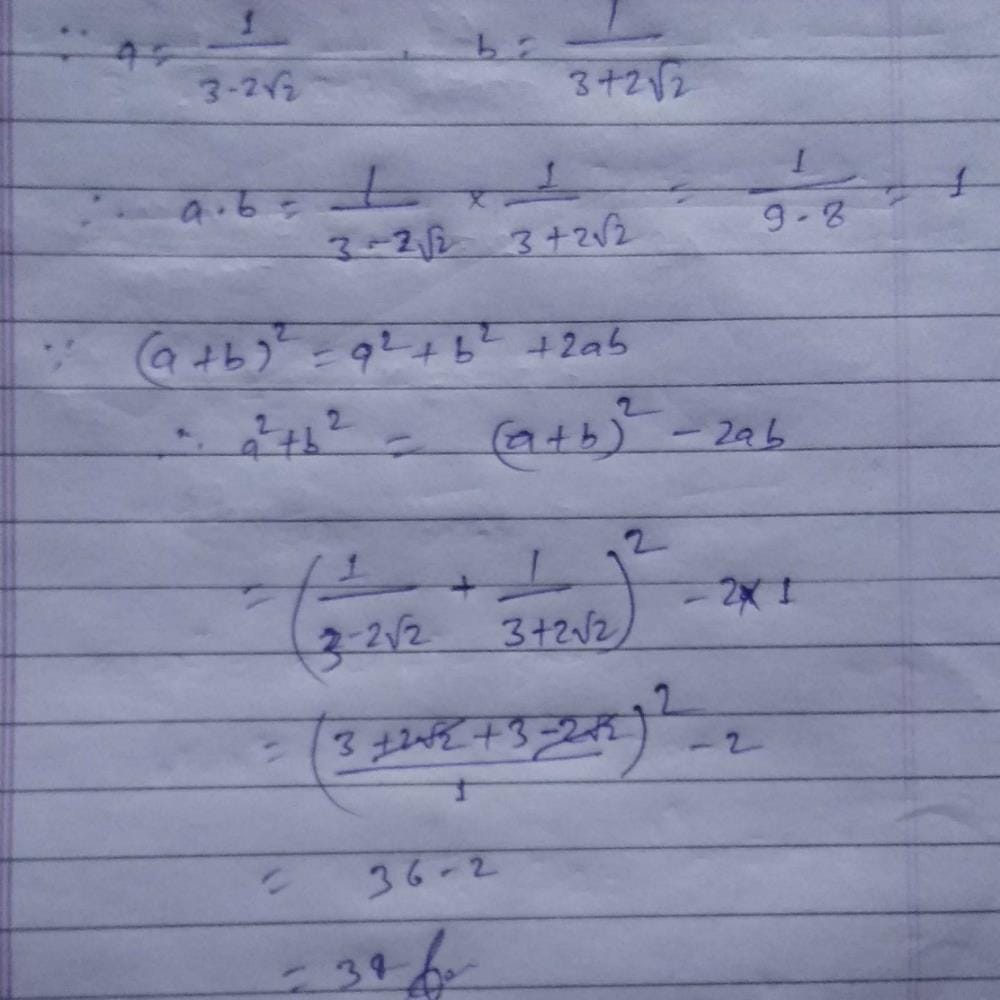 ∵ a = 1/(3-2√2) , b = 1/(3+2√2)
∴ a·b = 1/(3-2√2) × 1/(3+2√2) = 1/(9-8) = 1
∵ (a+b)² = a²+b² +2ab
∴ a²+b² = (a+b)² - 2ab
= (1/(3-2√2) + 1/(3+2√2))² - 2×1
= ((3+2√2+3-2√2)/1)² - 2
= 36-2
= 34